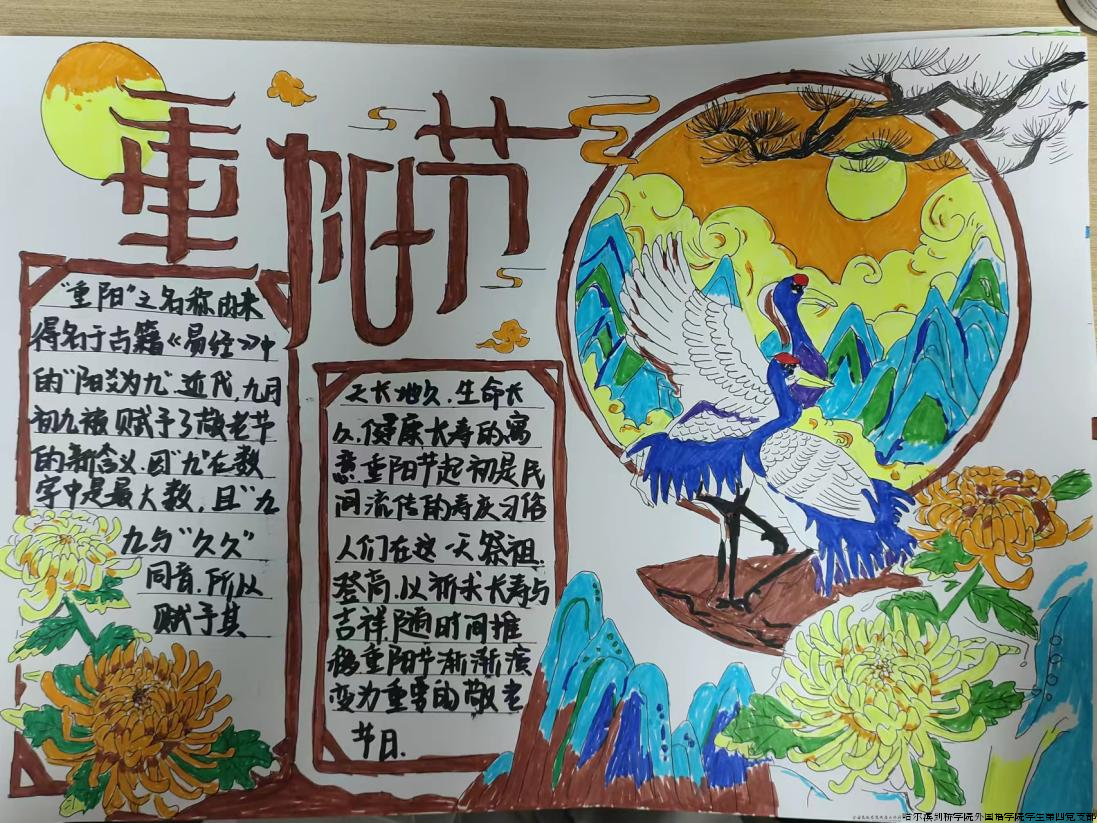 重阳节
"重阳"之名称由来
得名于古籍《易经》中
的"阳爻为九".近代,九月
初九被赋予了敬老节
的新含义.因"九"在数
字中是最大数,且"九
九与"久久"
同音,所以
赋予其
天长地久.生命长
久.健康长寿的寓
意重阳节起初是民
间流传的寿庆习俗
人们在这一天祭祖.
登高,以祈求长寿与
吉祥.随时间推
移重阳节渐渐演
变为重要的敬老
节日.
哈尔滨剑桥学院外国语学院学生第四党支部